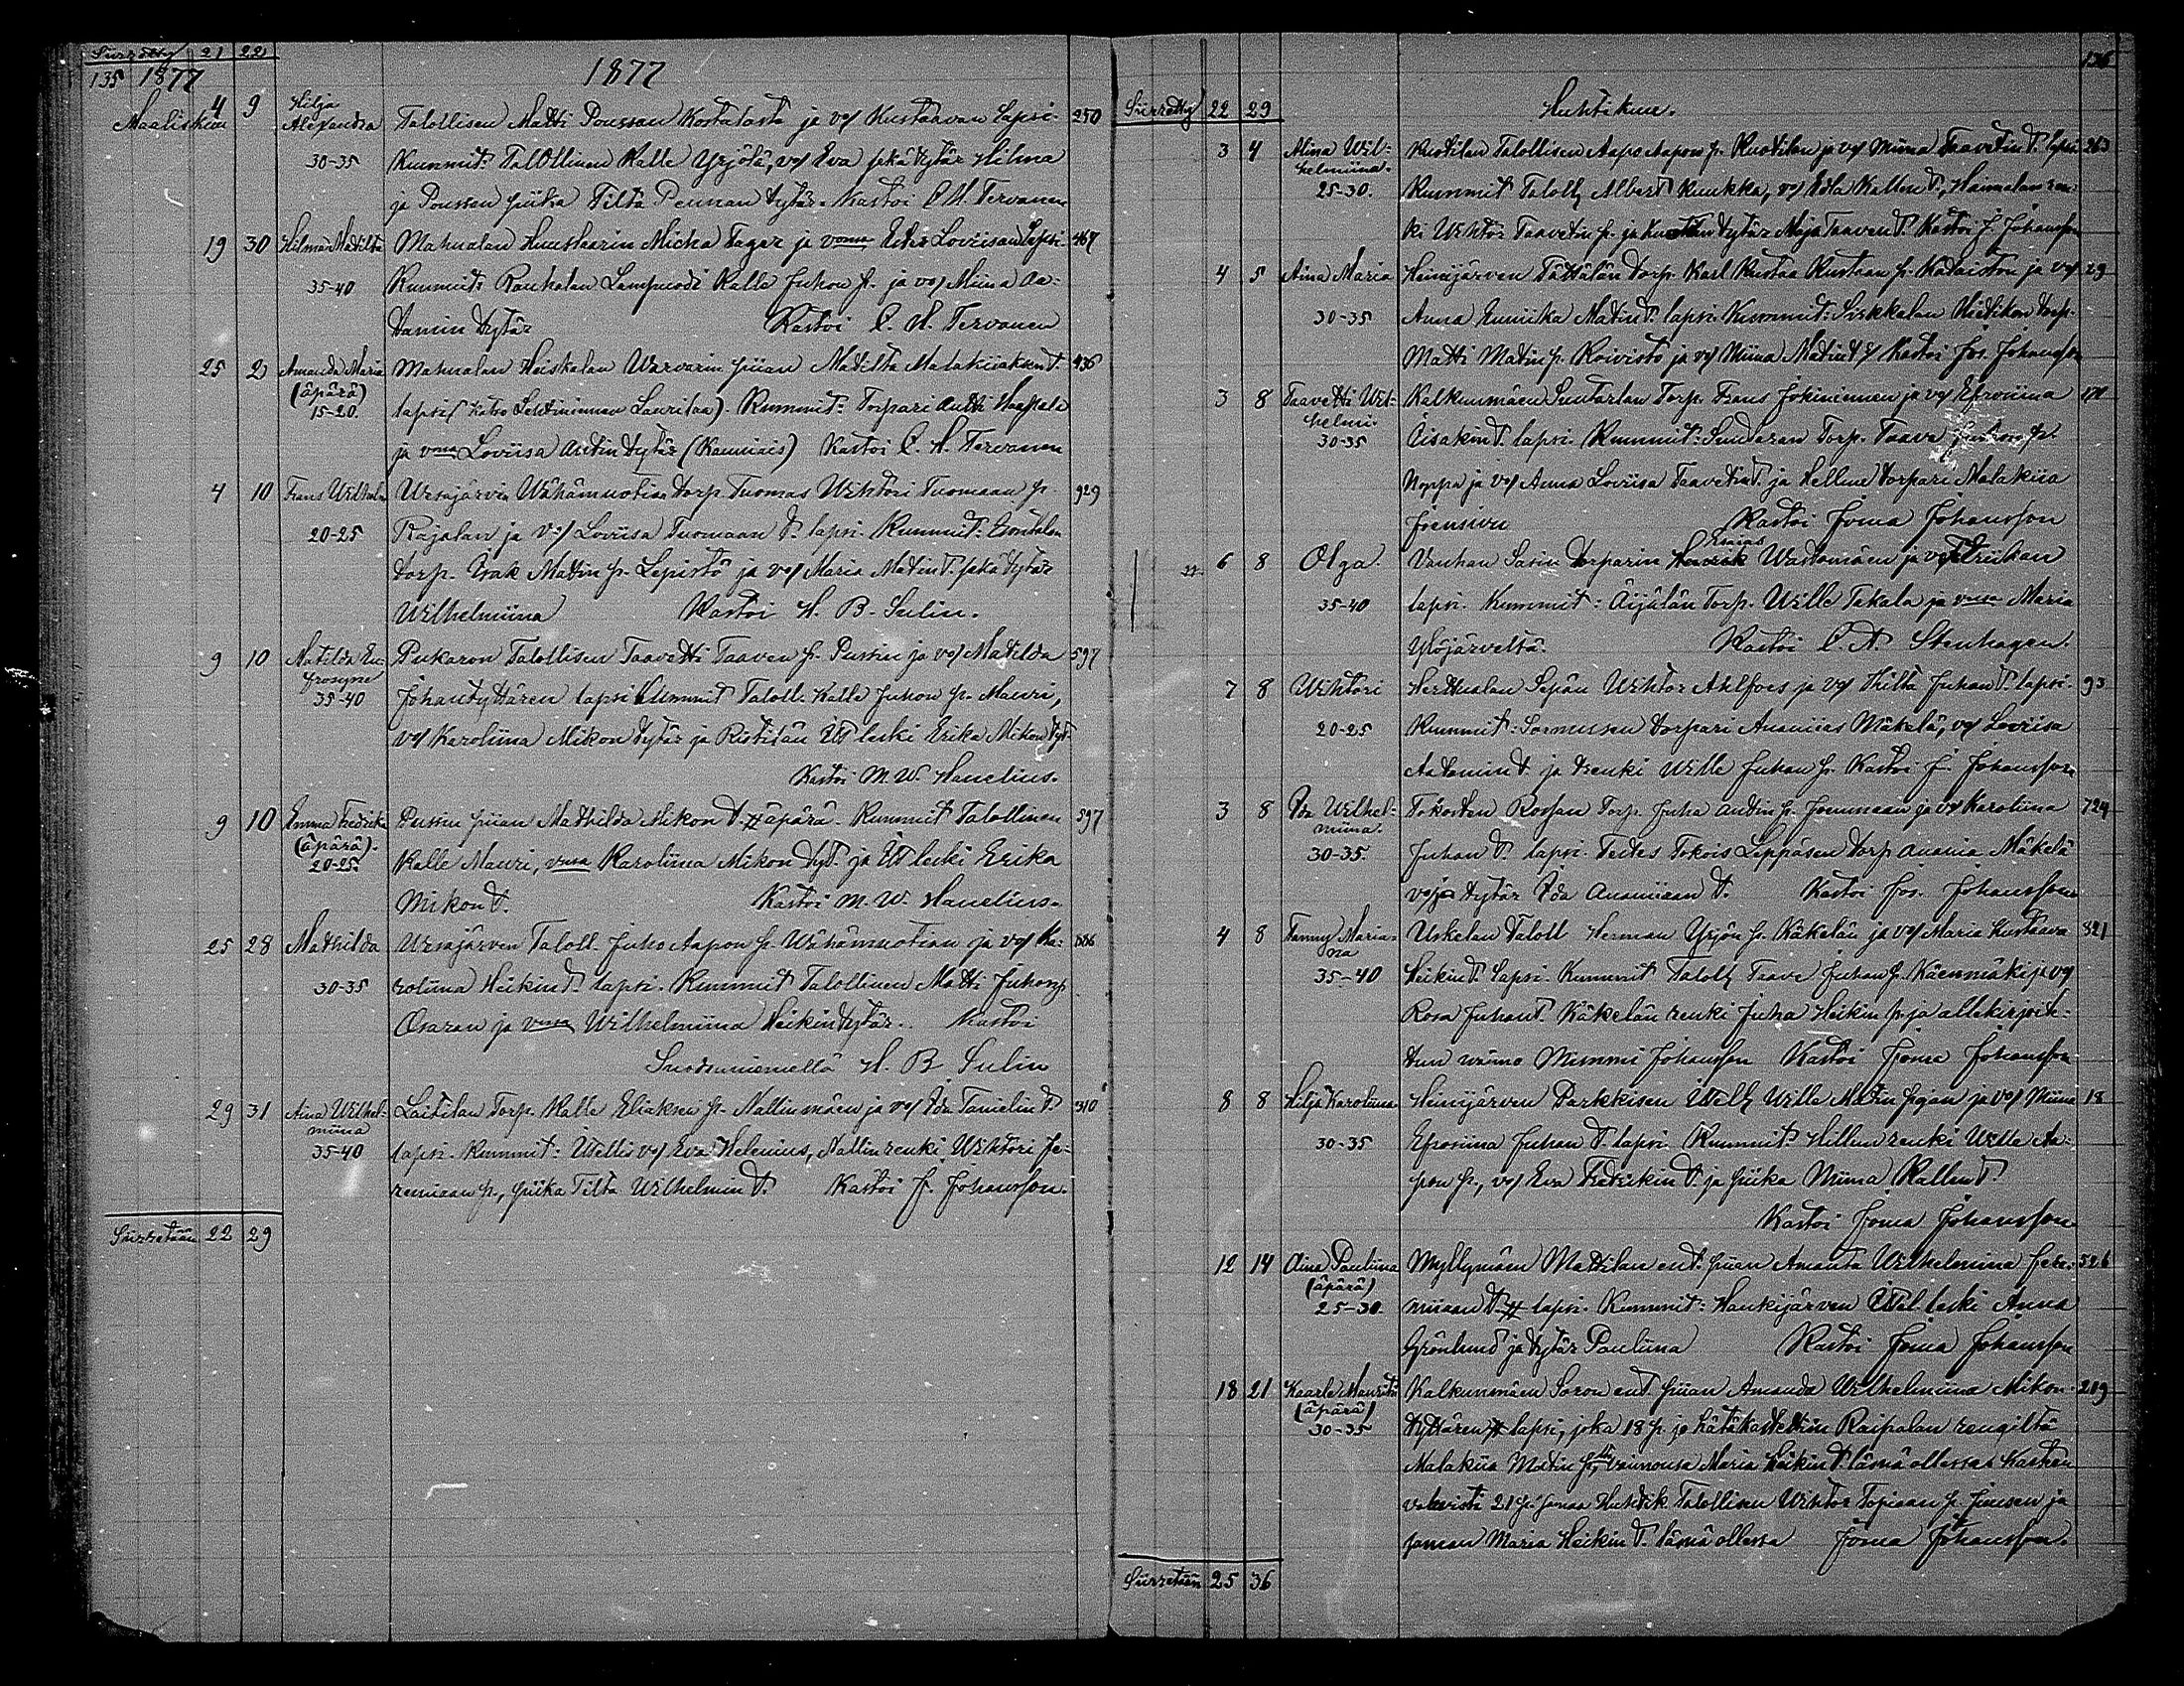 Siirretty 21 22
135 1877 1877
Maaliskuu 4 9 Hilja Alexandra Talollisen Matti Poussan Kostulasta ja vo/ Kustaavan Lapsi. 250
30-35 Kummit: Talollinen Kalle Yrjölä, vo/ Eva sekä tytär Hilma
ja Poussan piika Tilta Pennan tytär. Kastoi C. H. Tervanen
19 30 Hilma Matilta Mahnalan Huushaarin Micha Tager ja vomo Loviisan Lapsi 467
35-40 Kummit: Rauhalan Lampuodi Kalle Juhon p. ja vo/ Miina Aa-
tamin tytär Kastoi C. H. Tervanen
25 2 Amanda Maria Mahnalan Heiskalan Warvarin piian Matilta Malakiiaksen t. 436
(äpärä)
15-20. lapsi (katso Lehtiniemen Lauritaa). Kummit: Torpari Antti Haapala
ja vmo Loviisa Antin tytär (Kauniais) Kastoi C. H. Tervanen
4 10 Frans Wilhelm Wesajärven Wähämuotian torp. Tuomas Wihtori Tuomaan p. 929
20-25 Rajalan ja vo/ Loviisa Tuomaan t. lapsi. Kummit:
torp. Isak Matin p. Lepistö ja vo/ Maria Matin t. sekä tytär
Wilhelmiina Kastoi H. B. Sulin.
9 10 Matilda Eu-
frosyne Pukaron Talollisen Taavetti Taaven p. Pussin ja vo/ Matilda 597
35-40 Johan tyttären lapsi Kummit Taloll. Kalle Juhon p. Mauri,
vo/ Karoliina Mikon tytär ja Ristilän It. leski Erika Mikon tyt.
Kastoi M. W. Hanelius.
9 10 Emma Fredrika Pussin piian Mathilda Mikon t. # äpärä. Kummit Talollinen 597
(äpärä).
20-25. Kalle Mauri, vmo Karoliina Mikon tyt. ja It leski Erika
Mikon t. Kastoi M. W. Hanelius.
25 28 Mathilda Wesajärven Taloll. Juho Aapon p. Wähämuotian ja vo/ Ka- 886
30-35 roliina Heikin t. lapsi. Kummit Talollinen Matti Juhon p.
Osaran ja vmo Wilhelmiina Heikin tytär. Kastoi
Suodenniemellä H. B Sulin
29 31 Aina Wilhel-
miina Laitilan Torp. Kalle Eliaksen p. Nallinmäen ja vo/ Ida Tanielin t. 310
35-40 lapsi. Kummit: Itellis vo/ Eva Helenius, Nallin renki Wihtori Je-
remiaan p., piika Tilta Wilhelmin t. Kastoi J. Johansson.
Siirretään 22 29
136
Siirretty 22 29 Huhtikuu.
3 4 Alina Wil-
helmiina. Kustilan Talollisen Aapo Aapon p. Kustilan ja vo/ Miina Taavetin t. lapsi 263
25-30. Kummit Taloll Albert Kuukka, vo/ Ida Kallen t., Hannulan ren-
ki Wihtor Taavetin p. ja tytär Maja Taaven t. Kastoi J. Johansson
4 5 Aina Maria Heinijärven Tättälän torp. Karl Kustaa Kustaan p. Kataiston ja vo/ 29
30-35 Anna Eumiika Matin t. lapsi. Kummit: Sirkkalan torp.
Matti Matin p. Koivisto ja vo/ Miina Matin t. Kastoi Jos. Johansson
3 8 Taavetti Wil-
helmi. Kalkunmäen Suntarlan Torp. Frans Jokiniemen ja vo/ Efrosiina 171
30-35 Iisakin t. lapsi. Kummit: Sundaran Torp. Taave Juhan p.
Noppa ja vo/ Anna Loviisa Taavetin t. ja Hellme torpari Malakiia
Joensivu Kastoi Joma Johansson
6 8 Olga. Vanhan Sasin torparin Esaias Wastamäen ja vo/ Triikan
35-40 lapsi. Kummit: Äijälän Torp. Wille Takala ja vmo Maria
Ylöjärveltä. Kastoi C. A. Stenhagen.
7 8 Wihtori Herttualan Sepän Wihtor Ahlfors ja vo/ Hilta Juhan t. lapsi. 93
20-25 Kummit: Sormusen torpari Ananias Mäkelä, vo/ Loviisa
Aatamin t. ja renki Wille Juhan p. Kastoi J. Johansson
3 8 Ida Wilhel-
miina. Tokosten Torp. Juha Antin p. Jommaan ja vo/ Karoliina 724
30-35. Juhan t. lapsi. Testes Tokois Leppäsen torp Anania Mäkelä
vo ja tytär Ida Ananiaan t. Kastoi Jos. Johansson
4 8 Fanny Maria-
na Uskelan Taloll Herman Yrjön p. Käkelän ja vo/ Maria Kustaava 821
35-40 Heikin t. Lapsi. Kummit Taloll Taave Juhan p. Käenmäki ja vo/
Rosa Juhan t. Käkelän renki Juha Heikin p. ja allekirjoit-
tun waimo Mimmi Johansson Kastoi Joma Johansson.
8 8 Hilja Karoliina Heinijärven Parkkisen Itell Wille Matin pojan ja vo/ Miina 18
30-35 Efrosiina Juhan t. lapsi. Kummit: Hillun renki Wille Aa-
pon p., vo/ Eva Fredrikin t. ja piika Miina Kallen t.
Kastoi Joma Johansson.
12 14 Aina Pauliina Myllymäen Mattilan ent. piian Amanta Wilhelmiina Jere- 526
(äpärä)
25-30. miiaan t. # lapsi. Kummit: Haukijärven Itel. leski Anna
Grönlund ja tytär Pauliina Kastoi Joma Johansson
18 21 Kaarle Mauritz Kalkunmäen Soron ent. piian Amanda Wilhelmiina Mikon 219
(äpärä)
30-35 tyttären # lapsi, joka 18 p. jo hätäkastettiin Raipalan rengiltä
Malakiia Matin p., vaimonsa Maria Heikin t. läsnä ollessa. Kasteen
vahvisti 21 p. samaa Huhtik Talollisen Wihtor Topiaan p. Jussen ja
saman Maria Heikin t. läsnä ollessa Joma Johansson.
Siirretään 25 36